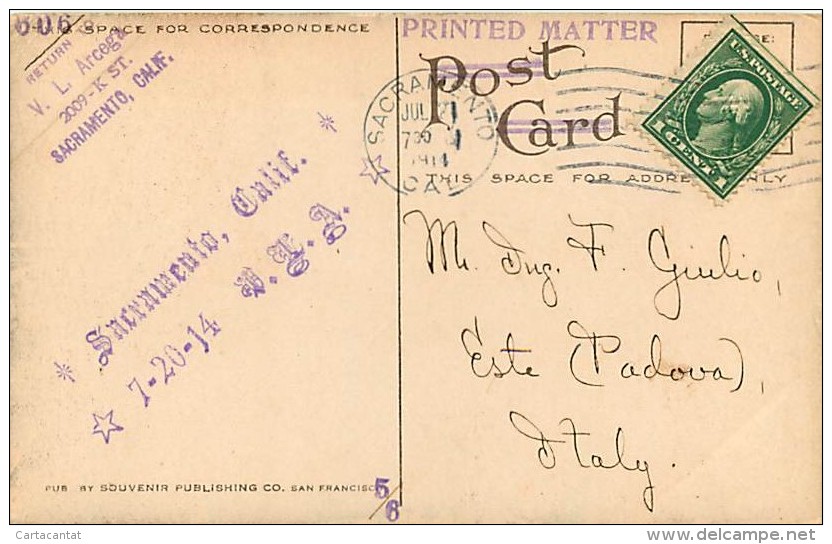 606
THIS SPACE FOR CORRESPONDENCE
RETURN
V. L. Arcega
2009-K ST.
SACRAMENTO, CALIF.
Sacramento, Calif.
7-20-14 U.S.A.
PUB BY SOUVENIR PUBLISHING CO. SAN FRANCISCO
5/6
PRINTED MATTER
Post
Card
SACRAMENTO
JUL
7 30
1914
CAL
U.S. POSTAGE
1 CENT 1
THIS SPACE FOR ADDRESS ONLY
Mr. Ing. F. Giulio,
Este (Padova),
Italy.
Cartacantat
delcampe.net